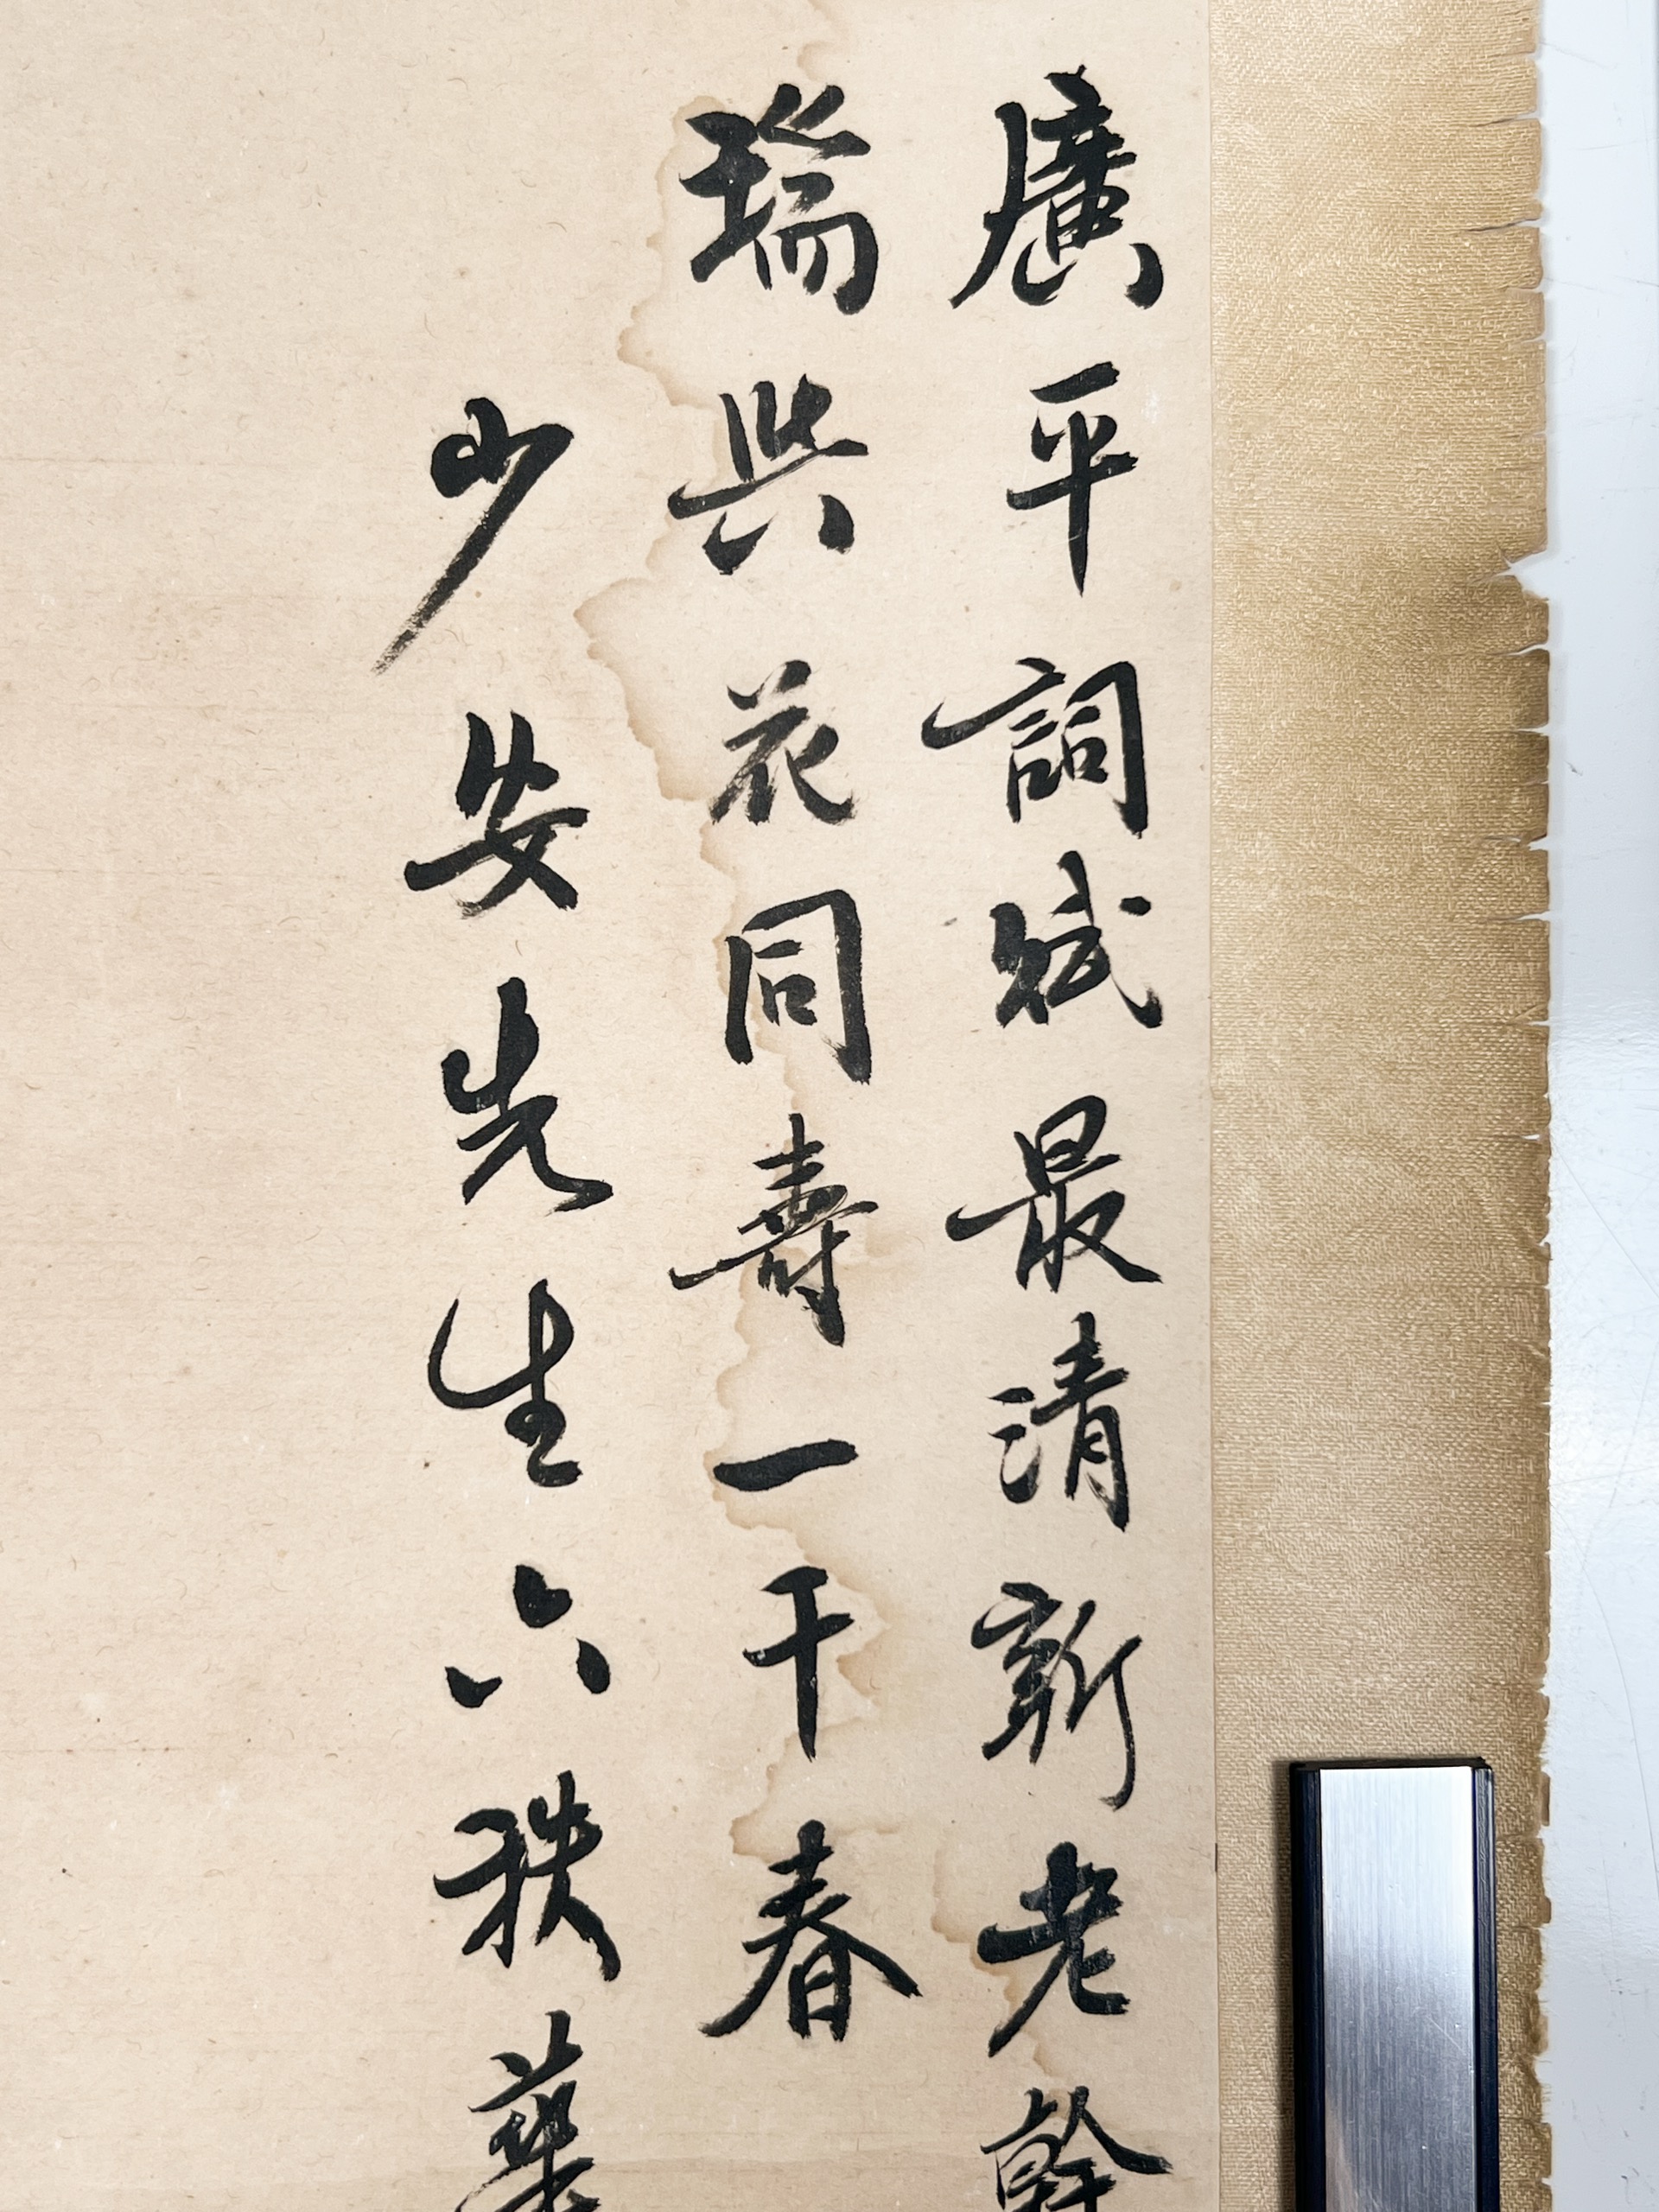 廣平詞賦最清新老幹
瑞與花同壽一千春
少安先生六秩